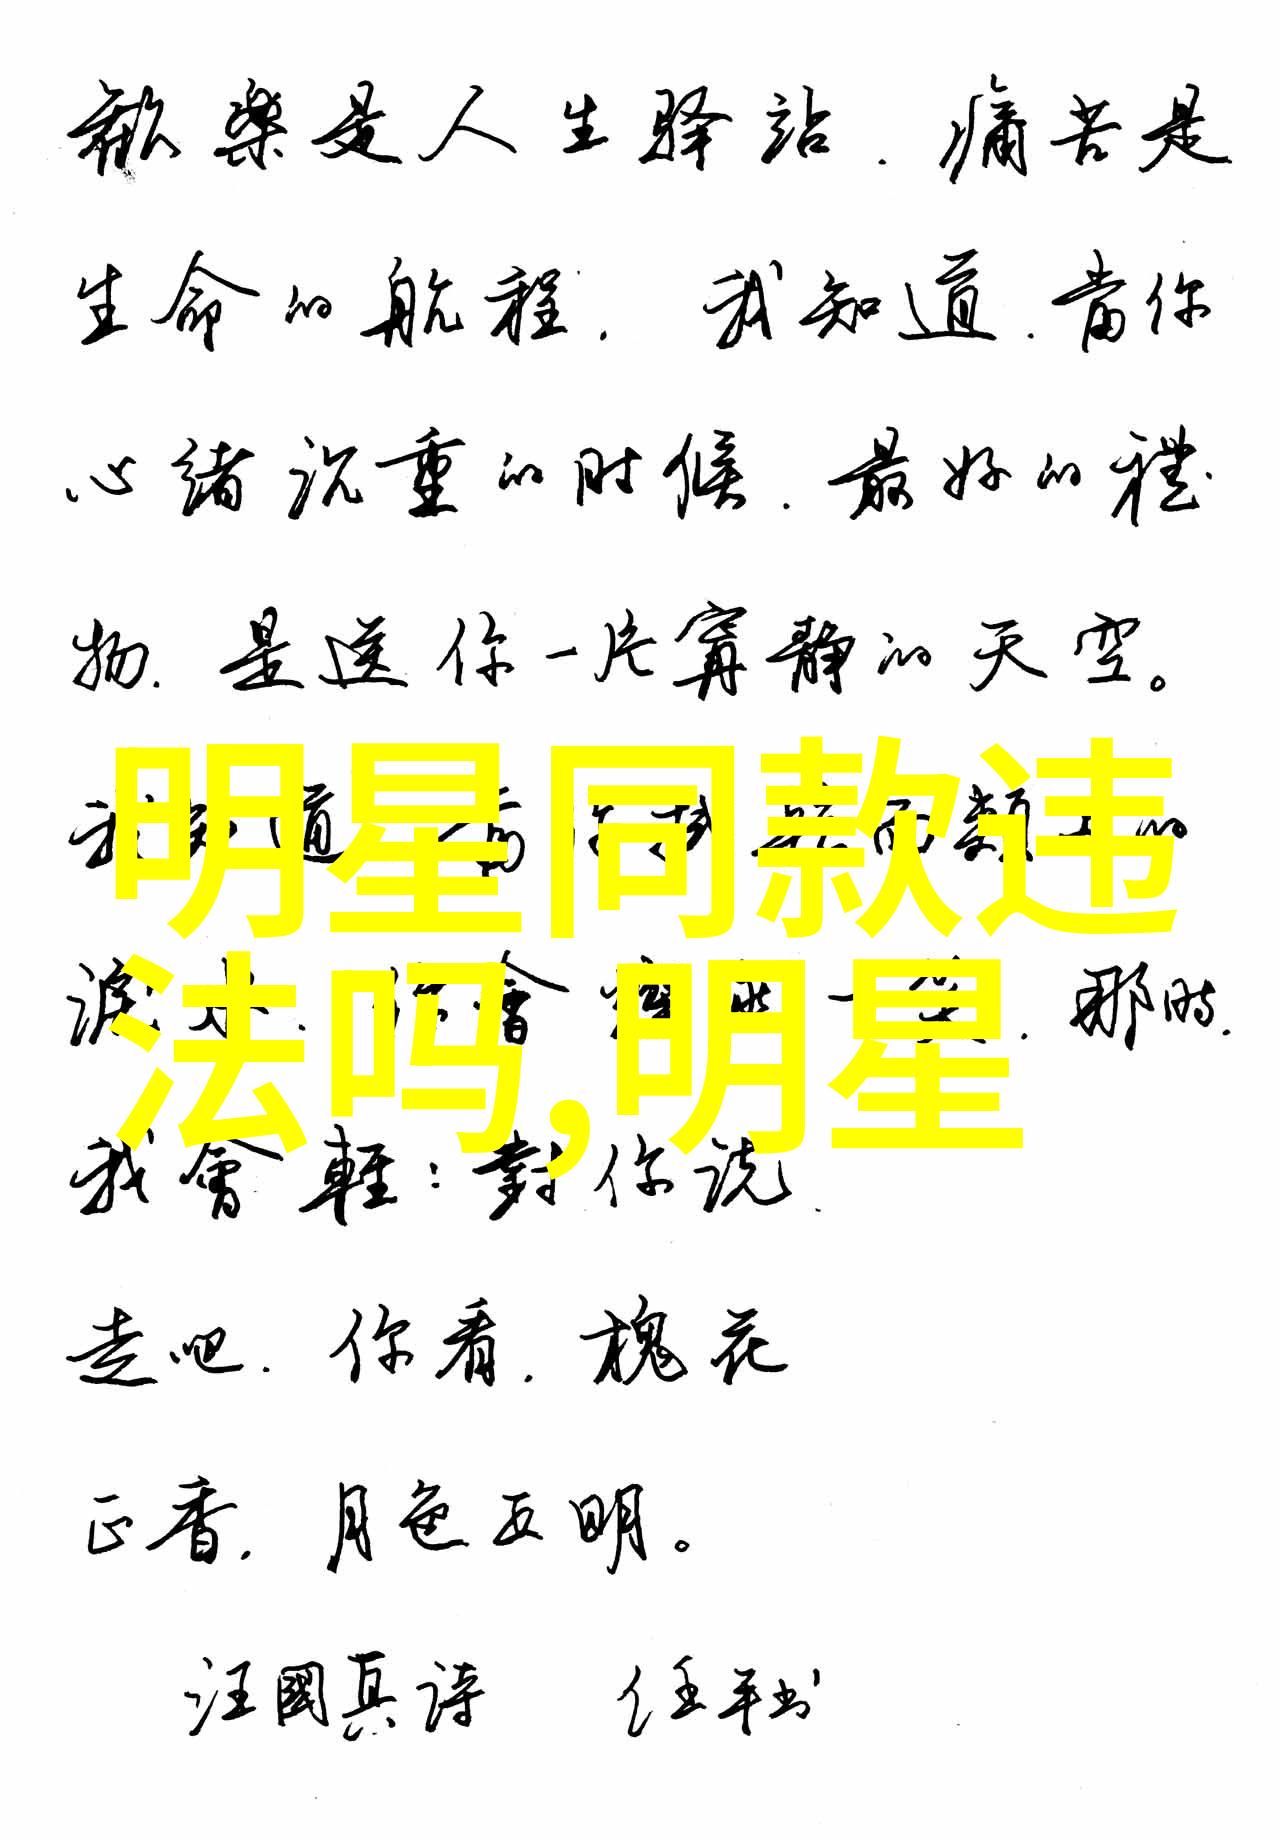 歡樂是人生驿站.痛苦是
生命的航程.我知道.當你
心緒沉重的时候.最好的禮
物.是送你一片寧静的天空。
明星同款违
法吗,明星
那時.
我會輕:對你说.
走吧.你看.槐花
正香.月色正明。
汪國真诗 任平书